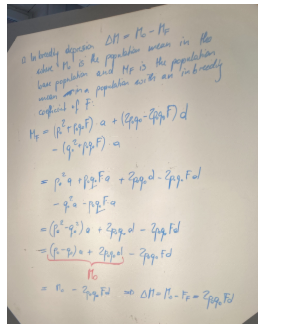 a. Inbreeding depression ΔM = M₀ - M_F
where M₀ is the population mean in the
base population and M_F is the population
mean in a population with an inbreeding
coefficient of F:
M_F = (p₀² + p₀q₀F) · a + (2p₀q₀ - 2p₀q₀F) d
- (q₀² + p₀q₀F) · a
= p₀² a + p₀q₀Fa + 2p₀q₀d - 2p₀q₀Fd
- q₀² a - p₀q₀Fa
= (p₀² - q₀²) a + 2p₀q₀d - 2p₀q₀Fd
= (p₀ - q₀) a + 2p₀q₀d - 2p₀q₀Fd
M₀
= M₀ - 2p₀q₀Fd ⇒ ΔM = M₀ - M_F = 2p₀q₀Fd